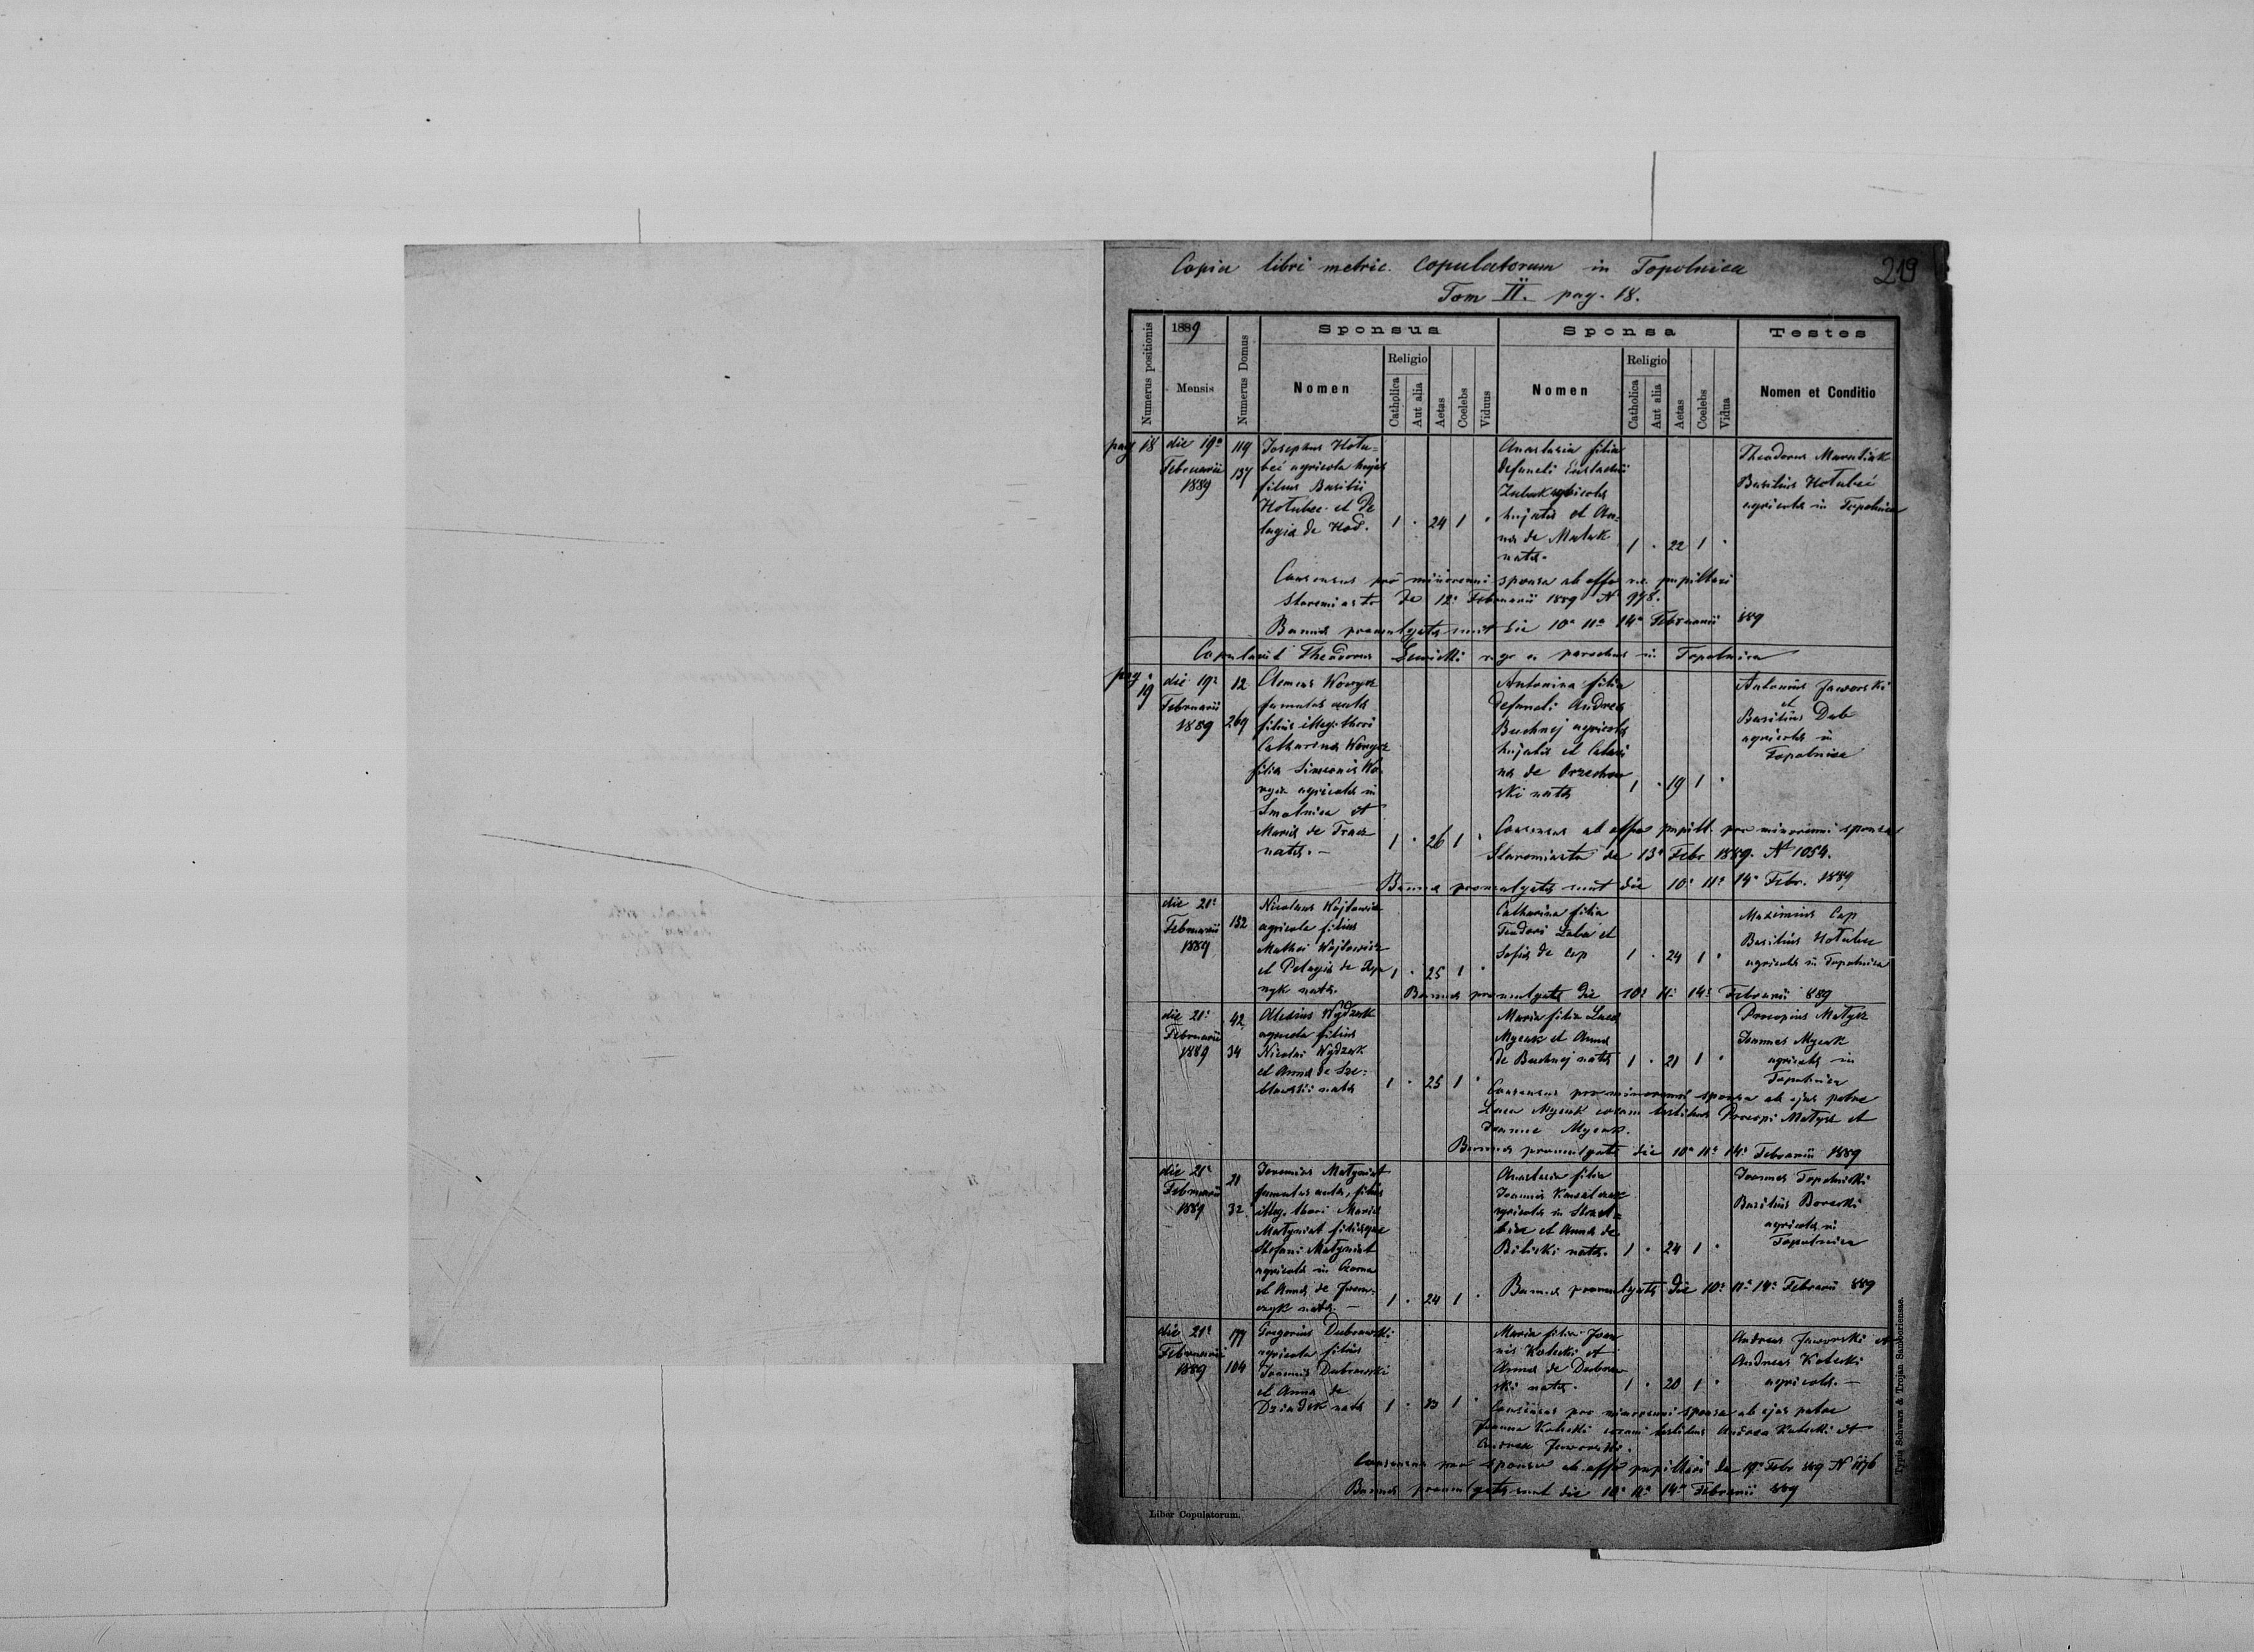 Copia libri metric. Copulatorum in Topolnica
219
Tom II. pag. 18.
Numerus positionis
1889
Mensis
Numerus Domus
Sponsus
Nomen
Religio
Catholica
Aut alia
Aetas
Coelebs
Viduus
Sponsa
Nomen
Religio
Catholica
Aut alia
Aetas
Coelebs
Vidua
Testes
Nomen et Conditio
pag 18
die 19a
Februarii
1889
119
137
Josephus Hołu=
beć agricola hujas
filius Basilii
Hołubec et Pe
lagia de Hod.
1 . 24 1 .
Anastasia filia
defuncti Eustachii
agricolae
hujatis et An=
na de
nata.
1 . 22 1 .
Theodorus
Basilius Hołubec
agricolae in Topolnica
Consensus pro minorenni sponsa ab offo pupillari
Staremiasto de 12. Februarii 1889 N 978.
Banna promulgata sunt die 10a 11a 14a Februarii 889
Copulavit Theodorus Lewicki parochus in Topolnica
pag.
19
die 19a
Februarii
1889
12
269
Clemens
famulus
filius illeg. thori
Catharina
filia Simeonis
agricola in
Smolnica et
Maria de Tracz
nata. –
1 . 26 1 .
Antonina filia
defuncti Andrea
Buchnej agricola
hujatis et Catari
na de Orzechow
ski nata
1 . 19 1 .
Antonius Jaworski
et
Basilius Dub
agricola in
Topolnica
Consensus ab offo pupill. pro minorenni sponsa
Staromiasta de 13a Febr 1889. N 1054.
Banna promulgata sunt die 10a 11a 14a Febr. 1889
die 21a
Februarii
1889
132
Nicolaus Wojtowicz
agricola filius
Mathei Wojtowicz
et Pelagia de
nyk nata.
1 . 25 1 .
Catharina filia
Teodori et
Sofia de Cap
1 . 24 1 .
Maximius Cap
Basilius Hołubec
agricola in Topolnica
Banna promulgata die 10a 11a 14a Februarii 889
die 21a
Februarii
1889
42
34
Alexius Wydzak
agricola filius
Nicolai Wydzak
et Anna de
nata
1 . 25 1 .
Maria filia Luca
Mycak et Anna
de Buchnej nata
1 . 21 1 .
Procopius Matysz
Joannes Mycak
agricola in
Topolnica
Consensus pro minorenni sponsa ab ejus patre
Luca Mycak coram testibus Procopi Matysz et
Joanne Mycak.
Banna promulgata die 10a 11a 14a Februarii 1889
die 21a
Februarii
1889
21
32
Jeremias Matyniat
famulus filius
illeg. thori Maria
Matyniat filiaeque
Stefani Matyniat
agricola in
et Anna de
nata. –
1 . 24 1 .
Anastasia filia
Joannis
agricola in
et Anna de
Bilicki nata.
1 . 24 1 .
Joannes Topolnicki
Basilius Borecki
agricola in
Topolnica
Banna promulgata die 10a 11a 14a Februarii 889
die 21a
Februarii
1889
177
104
Gregorius Dubrawski
agricola filius
Joannis Dubrawski
et Anna de
Dziadek nata
1 . 1 .
Maria filia Joan
nis Kotecki et
Anna de Dubraw
ski nata.
1 . 20 1 .
Andreas Jaworski et
Andreas Kotecki
agricola. –
Consensus pro minorenni sponsa ab ejus patre
Joanna Kotecki coram testibus Andrea Kotecki et
Andrea Jaworski.
Consensus pro sponso ab offo pupillari de 19a Febr 889 N 1176
Banna promulgata sunt die 10a 11a 14a Februarii 889
Liber Copulatorum.
Typis Schwarz & Trojan Samboriensae.